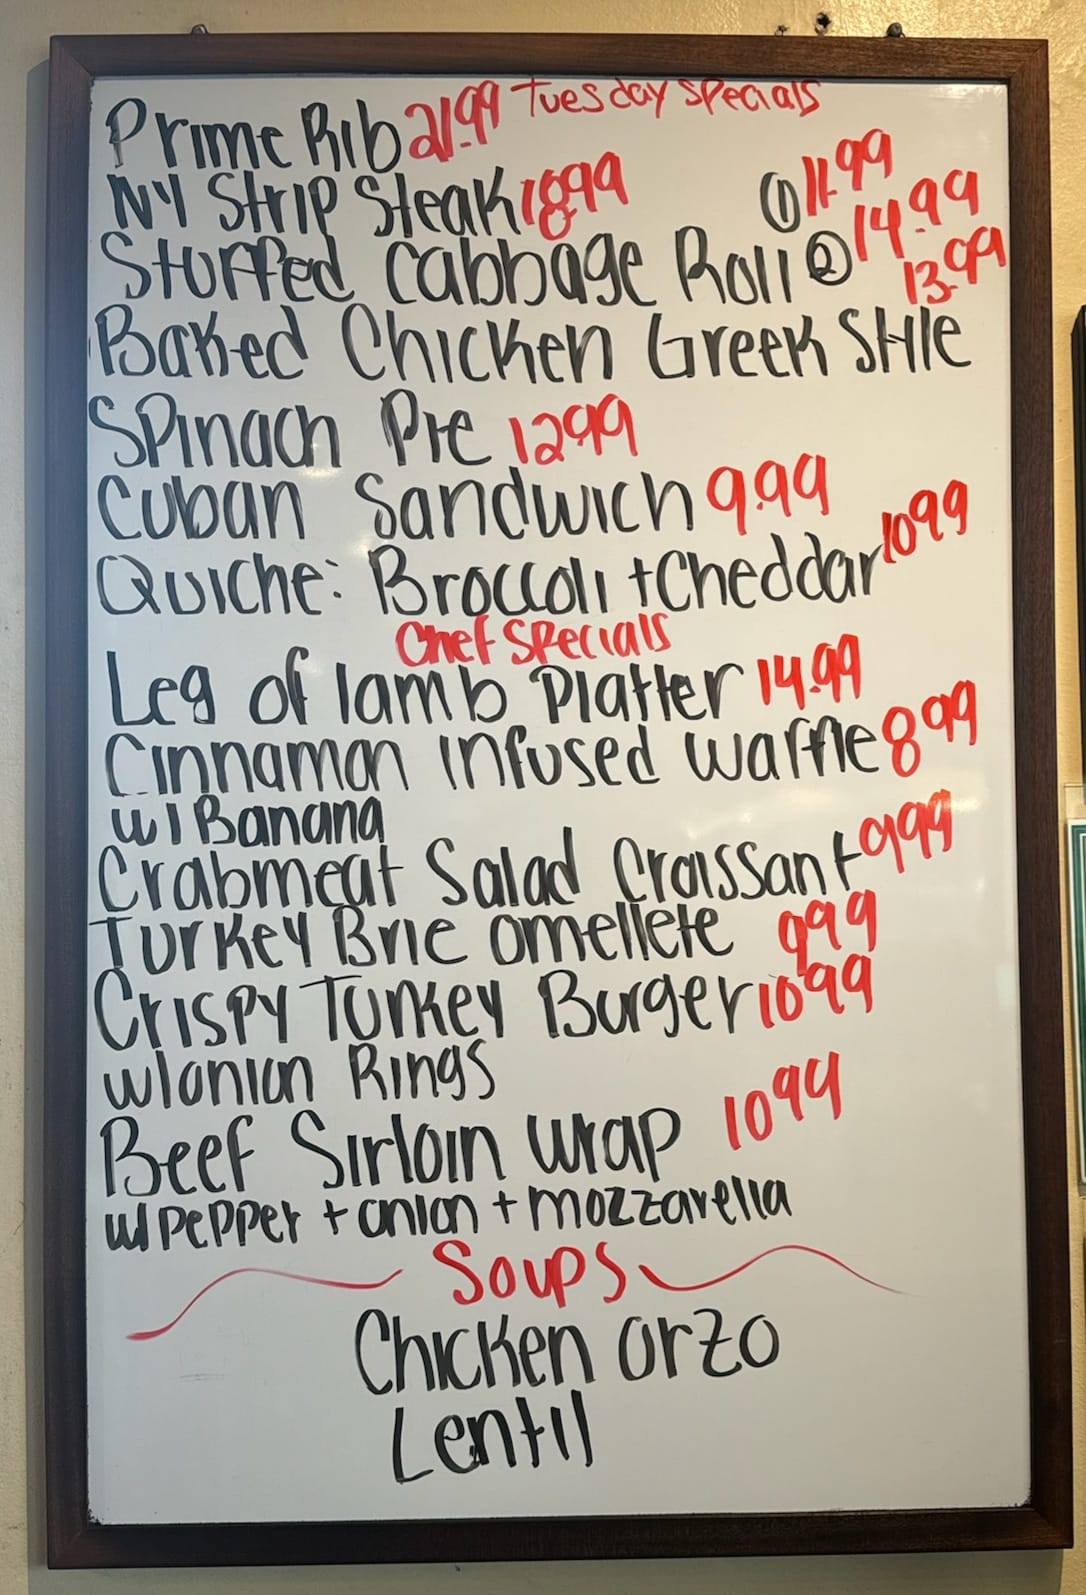 Tuesday Specials
Prime Rib 21.99
NY Strip Steak 18.99
Stuffed Cabbage Roll ① 11.99 ② 14.99
Baked Chicken Greek Style 13.99
Spinach Pie 12.99
Cuban Sandwich 9.99
Quiche: Broccoli + Cheddar 10.99
Chef Specials
Leg of lamb Platter 14.99
Cinnamon infused waffle 8.99
w/ Banana
Crabmeat Salad Croissant 9.99
Turkey Brie omellete 9.99
Crispy Turkey Burger 10.99
w/onion Rings
Beef Sirloin wrap 10.99
w/ Pepper + onion + mozzarella
Soups
Chicken orzo
Lentil